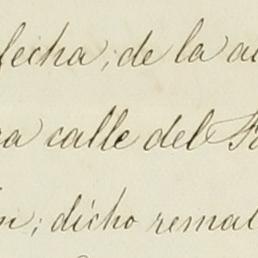 fecha; de la a
a calle del
n; dicho remat